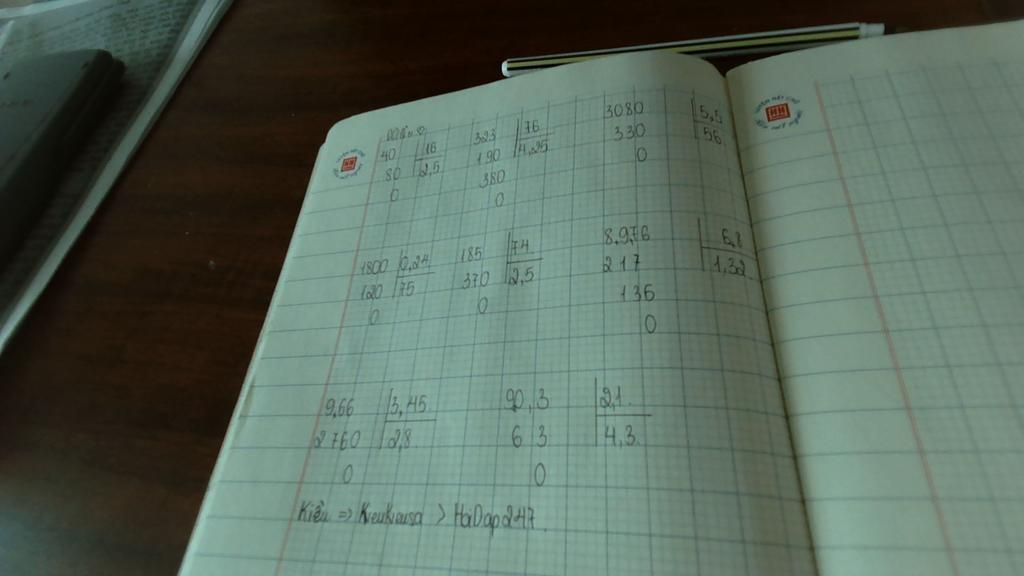 40 16
80 2,5
0
323 76
190 4,25
380
0
3080 5,5
330 56
0
1800 0,24
120 75
0
185 74
370 2,5
0
8,9,76 6,8
217 1,32
136
0
9,66 3,45
2760 2,8
0
90,3 2,1
63 4,3
0
Kiều => Kieukiausa > HoiDap247